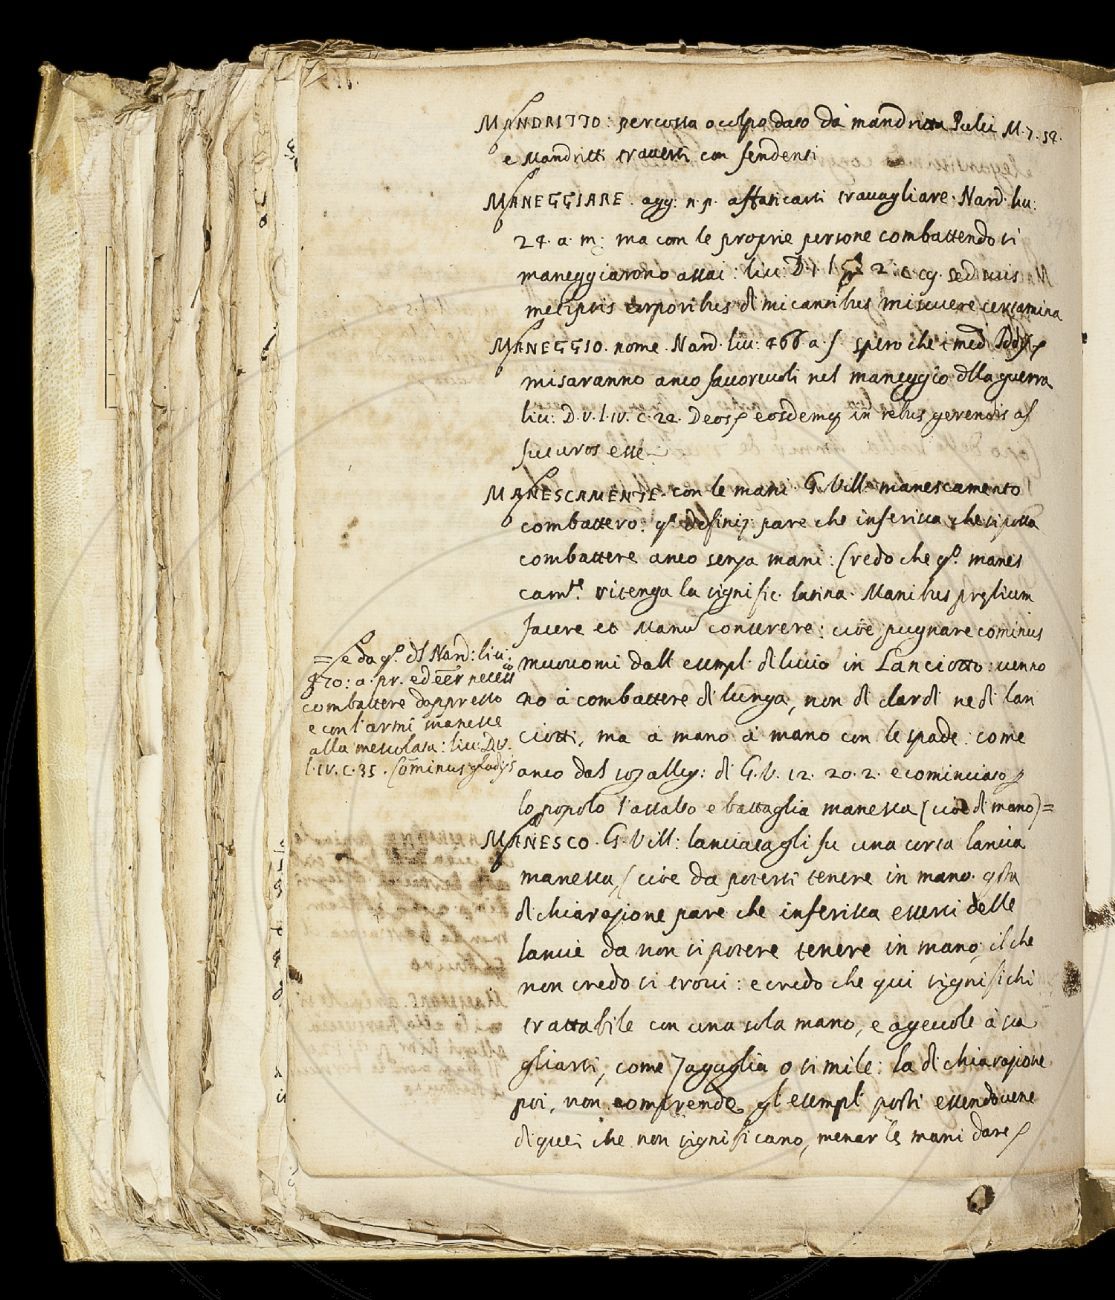 MANDRITTO: percossa o colpo dato da mandritta Pulci M. 7. 54.
e Mandritti traversi con fendenti
MANEGGIARE. agg. n. p. affaticarsi travagliare. Nard. liv.
24. a. m: ma con le proprie persone combattendo si
maneggiarono assai: liu: D. 1. l. 2. c. cq. sed suis
metipsis corporibus dimicantibus miscuere certamina
MANEGGIO. nome. Nard. liu: 466. a f. spero che i med.
mi saranno anco favorevoli nel maneggio dlla guerra
liu: D. v. l. iv. c. 22. Deosq eosdemq in rebus gerendis af
futuros esse
MANESCAMENTE. con le mani. G. Vill: manescamento
combattero: qª definiz: pare che inferisca che si possa
combattere anco senza mani: Credo che qº. manes
camte. ritenga la signific. latina. Manibus prœlium
facere et Manu conserere: cioè pugnare cominus
muovomi dall esempl. di liuio in Lanciotto: uenno
no à combattere di lunga, non di dardi ne di lan
ciotti, ma à mano à mano con le spade: come
anco dal alleg: di G. V. 12. 20. 2. e cominciaro
lo popolo l'assalto e battaglia manesca (cioè di mano)=
= e da qº. dl Nard: liu:
470: a. pr. ed eēr necess
combattere dappresso
e con l'armi manesce
alla mescolata: liu: D. v.
l. iv. c. 35. Cominus gladijs
MANESCO. G. Vill: lanciatagli fu una corta lancia
manesca, (cioè da potersi tenere in mano. qsta
dichiarazione pare che inferisca esserci delle
lancie da non si potere tenere in mano; il che
non credo si trovi: e credo che qui significhi
trattabile con una sola mano, e agevole à sca
gliarsi, come zagaglia o simile: la dichiarazione
poi, non comprende gl'esempli posti essendouene
di quei che non significano, menar le mani dare